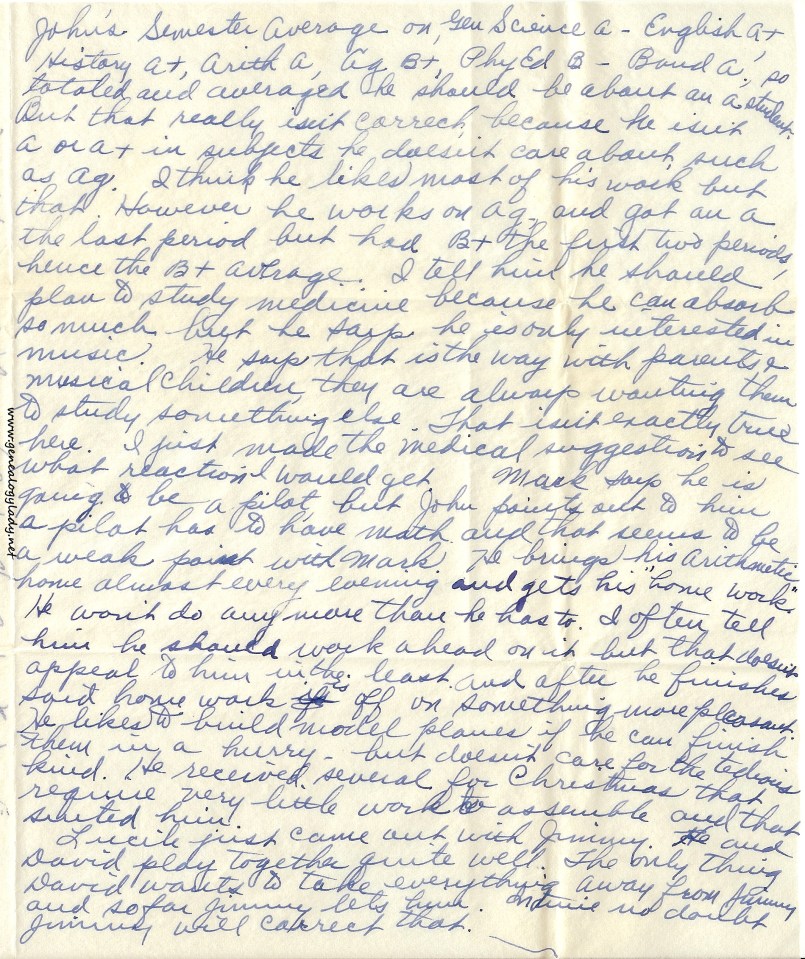 John's Semester Average on, Gen Science A - English A+
History A+, Arith A, Ag B+, Phy Ed B - Band A, so
totaled and averaged he should be about an A student.
But that really isn't correct because he isn't
A or A+ in subjects he doesn't care about such
as Ag. I think he likes most of his work but
that. However he works on Ag. and got an A
the last period but had B+ the first two periods,
hence the B+ average. I tell him he should
plan to study medicine because he can absorb
so much but he says he is only interested in
music. He says that is the way with parents &
musical children, they are always wanting them
to study something else. That isn't exactly true
here. I just made the medical suggestion to see
what reaction I would get. Mark says he is
going to be a pilot, but John points out to him
a pilot has to have math and that seems to be
a weak point with Mark. He brings his arithmetic
home almost every evening and gets his "home work".
He won't do any more than he has to. I often tell
him he should work ahead on it but that doesn't
appeal to him in the least and after he finishes
said home work is off on something more pleasant.
He likes to build model planes if he can finish
them in a hurry - but doesn't care for the tedious
kind. He received several for Christmas that
require very little work to assemble and that
suited him.
Lucile just came out with Jimmy. He and
David play together quite well. The only thing
David wants to take everything away from Jimmy
and so far Jimmy lets him. no doubt
Jimmy will correct that.
www.genealogylady.net